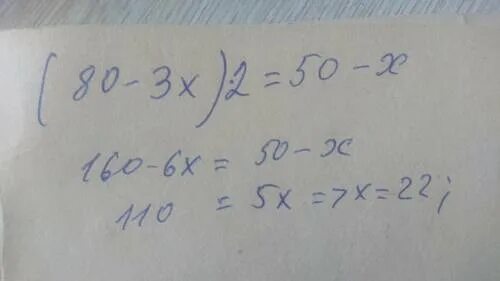 (80-3x)2=50-x
160-6x=50-x
110=5x=>x=22;